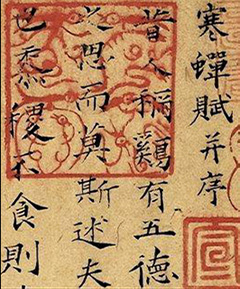 寒蟬賦并序
昔人稱鷄有五德
之思而莫斯述夫
也黍稷不食則